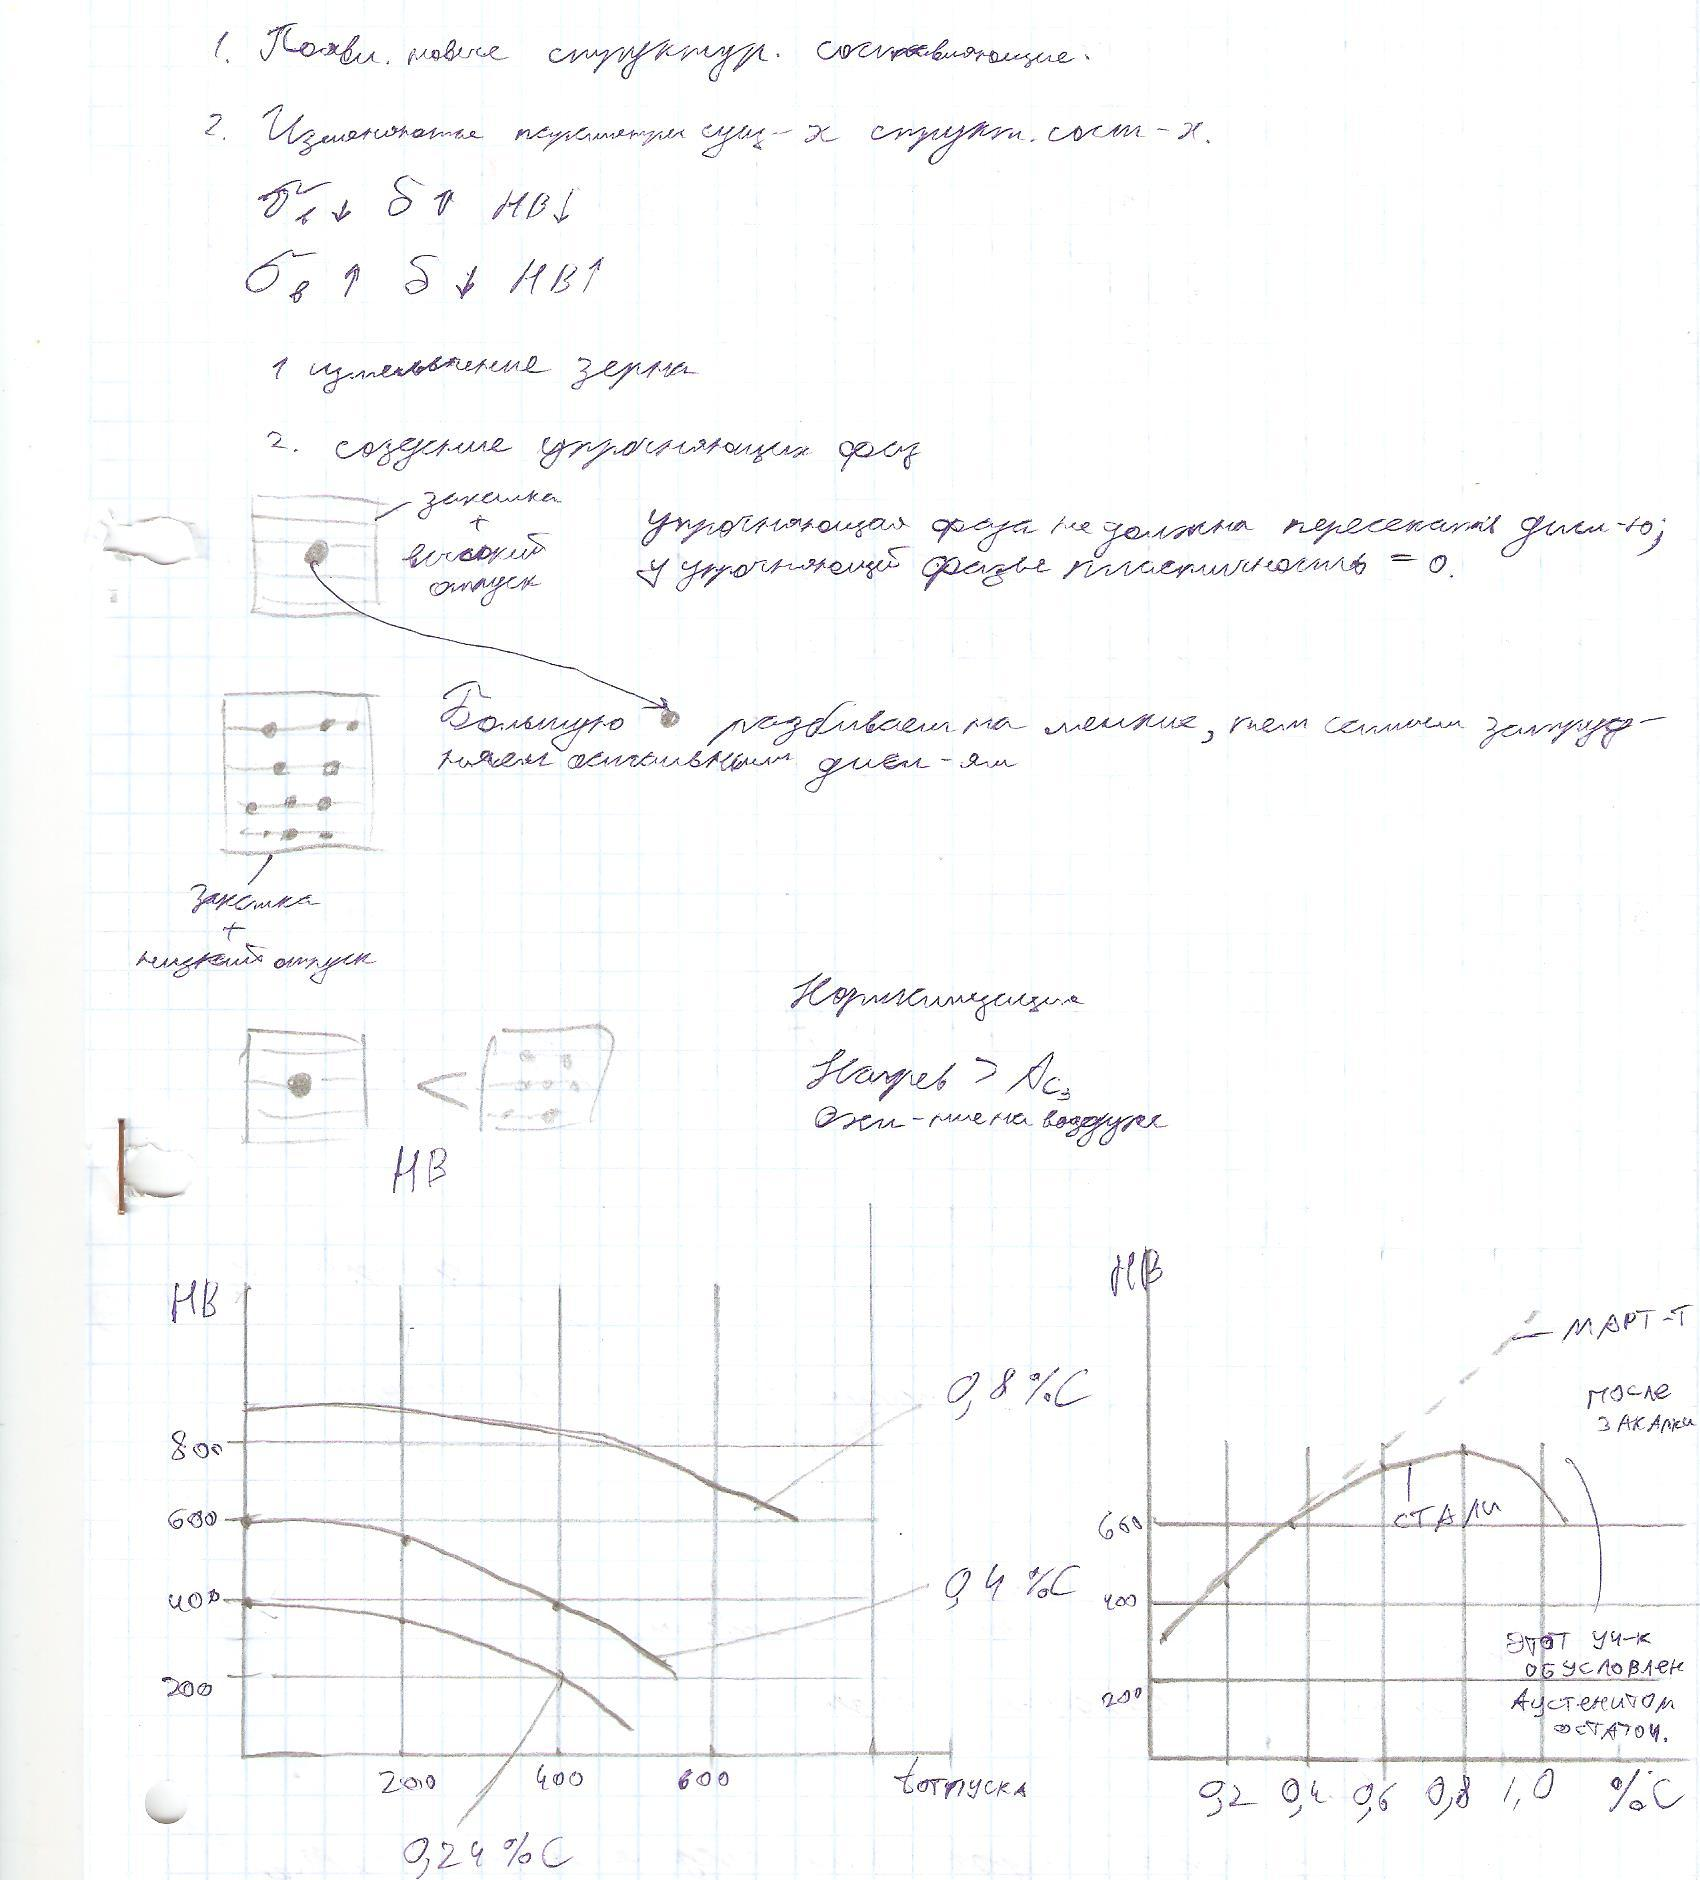 1. Появл. новые структур. составляющие.
2. Изменяются параметры сущ-х структ. сост-х.
σв↓ δ↑ HB↓
σв↑ δ↓ HB↑
1 измельчение зерна
2. создание упрочняющих фаз
закалка
+
высокий
отпуск
упрочняющая фаза не должна пересекать дисл-ю;
у упрочняющей фазы пластичность = 0.
Большую разбиваем на мелкие, тем самым затруд-
няем дисл-ям
Закалка
+
низкий отпуск
<
HB
Нормализация
Нагрев > Aс3
Охл-ние на воздухе
HB
800
600
400
200
200 400 600 tотпуска
0,8 %C
0,4 %C
0,24 %C
HB
МАРТ-Т
ПОСЛЕ
ЗАКАЛКИ
СТАЛИ
600
400
200
ЭТОТ УЧ-К
ОБУСЛОВЛЕН
АУСТЕНИТОМ
ОСТАТОЧ.
0,2 0,4 0,6 0,8 1,0 %C